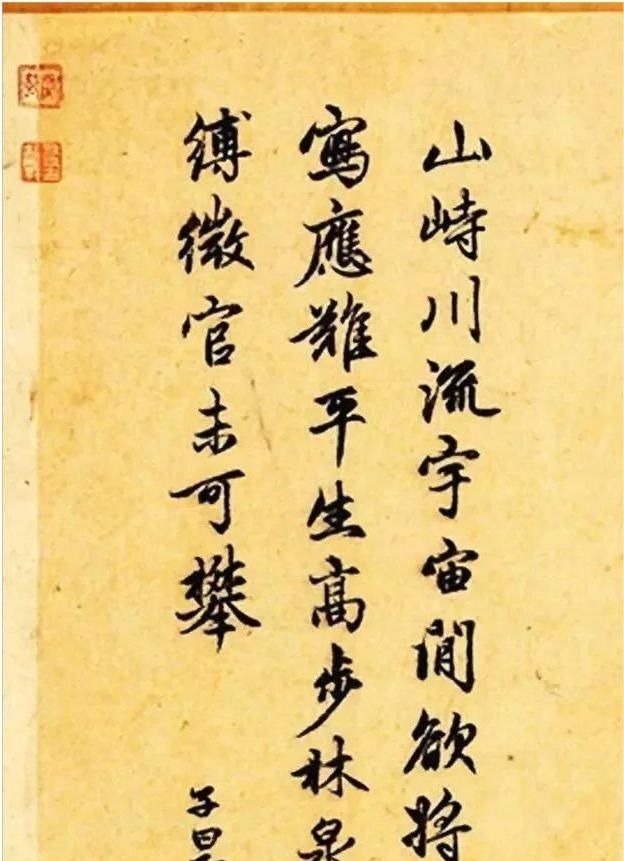 山峙川流宇宙間欲將
寫應難平生高步林泉
縛微官未可攀
子昂